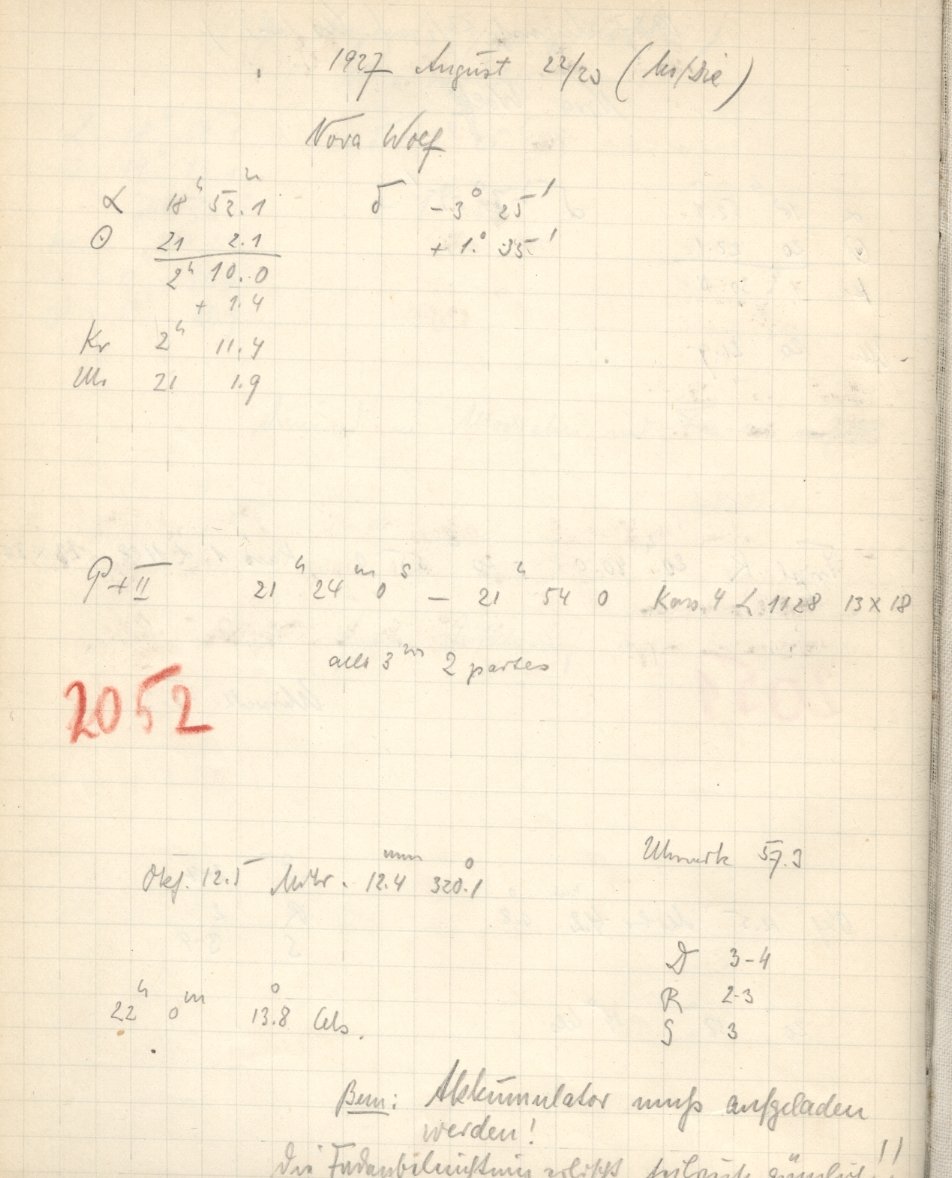 1927 August 22/23 (Mo/Die)
Nova Wolf
α 18ʰ 52.ᵐ1 δ -3° 25'
Θ 21 2.1 + 1.° 35'
2ʰ 10.0
+ 1.4
Kr 2ʰ 11.4
Uhr 21 1.9
P + II 21ʰ 24ᵐ 0ˢ — 21ʰ 54 0 Kass. 4 L 1128 13 x 18
alle 3ᵐ 2 partes
2052
Uhrwerk 57.3
Obj. 12.5 Mikr. 12.4ᵐᵐ 320.°1
D 3-4
R 2-3
22ʰ 0ᵐ 13.°8 Cels.
S 3
Bem: Akkumulator muß aufgeladen
werden!
Die Fadenbeleuchtung erlischt !!